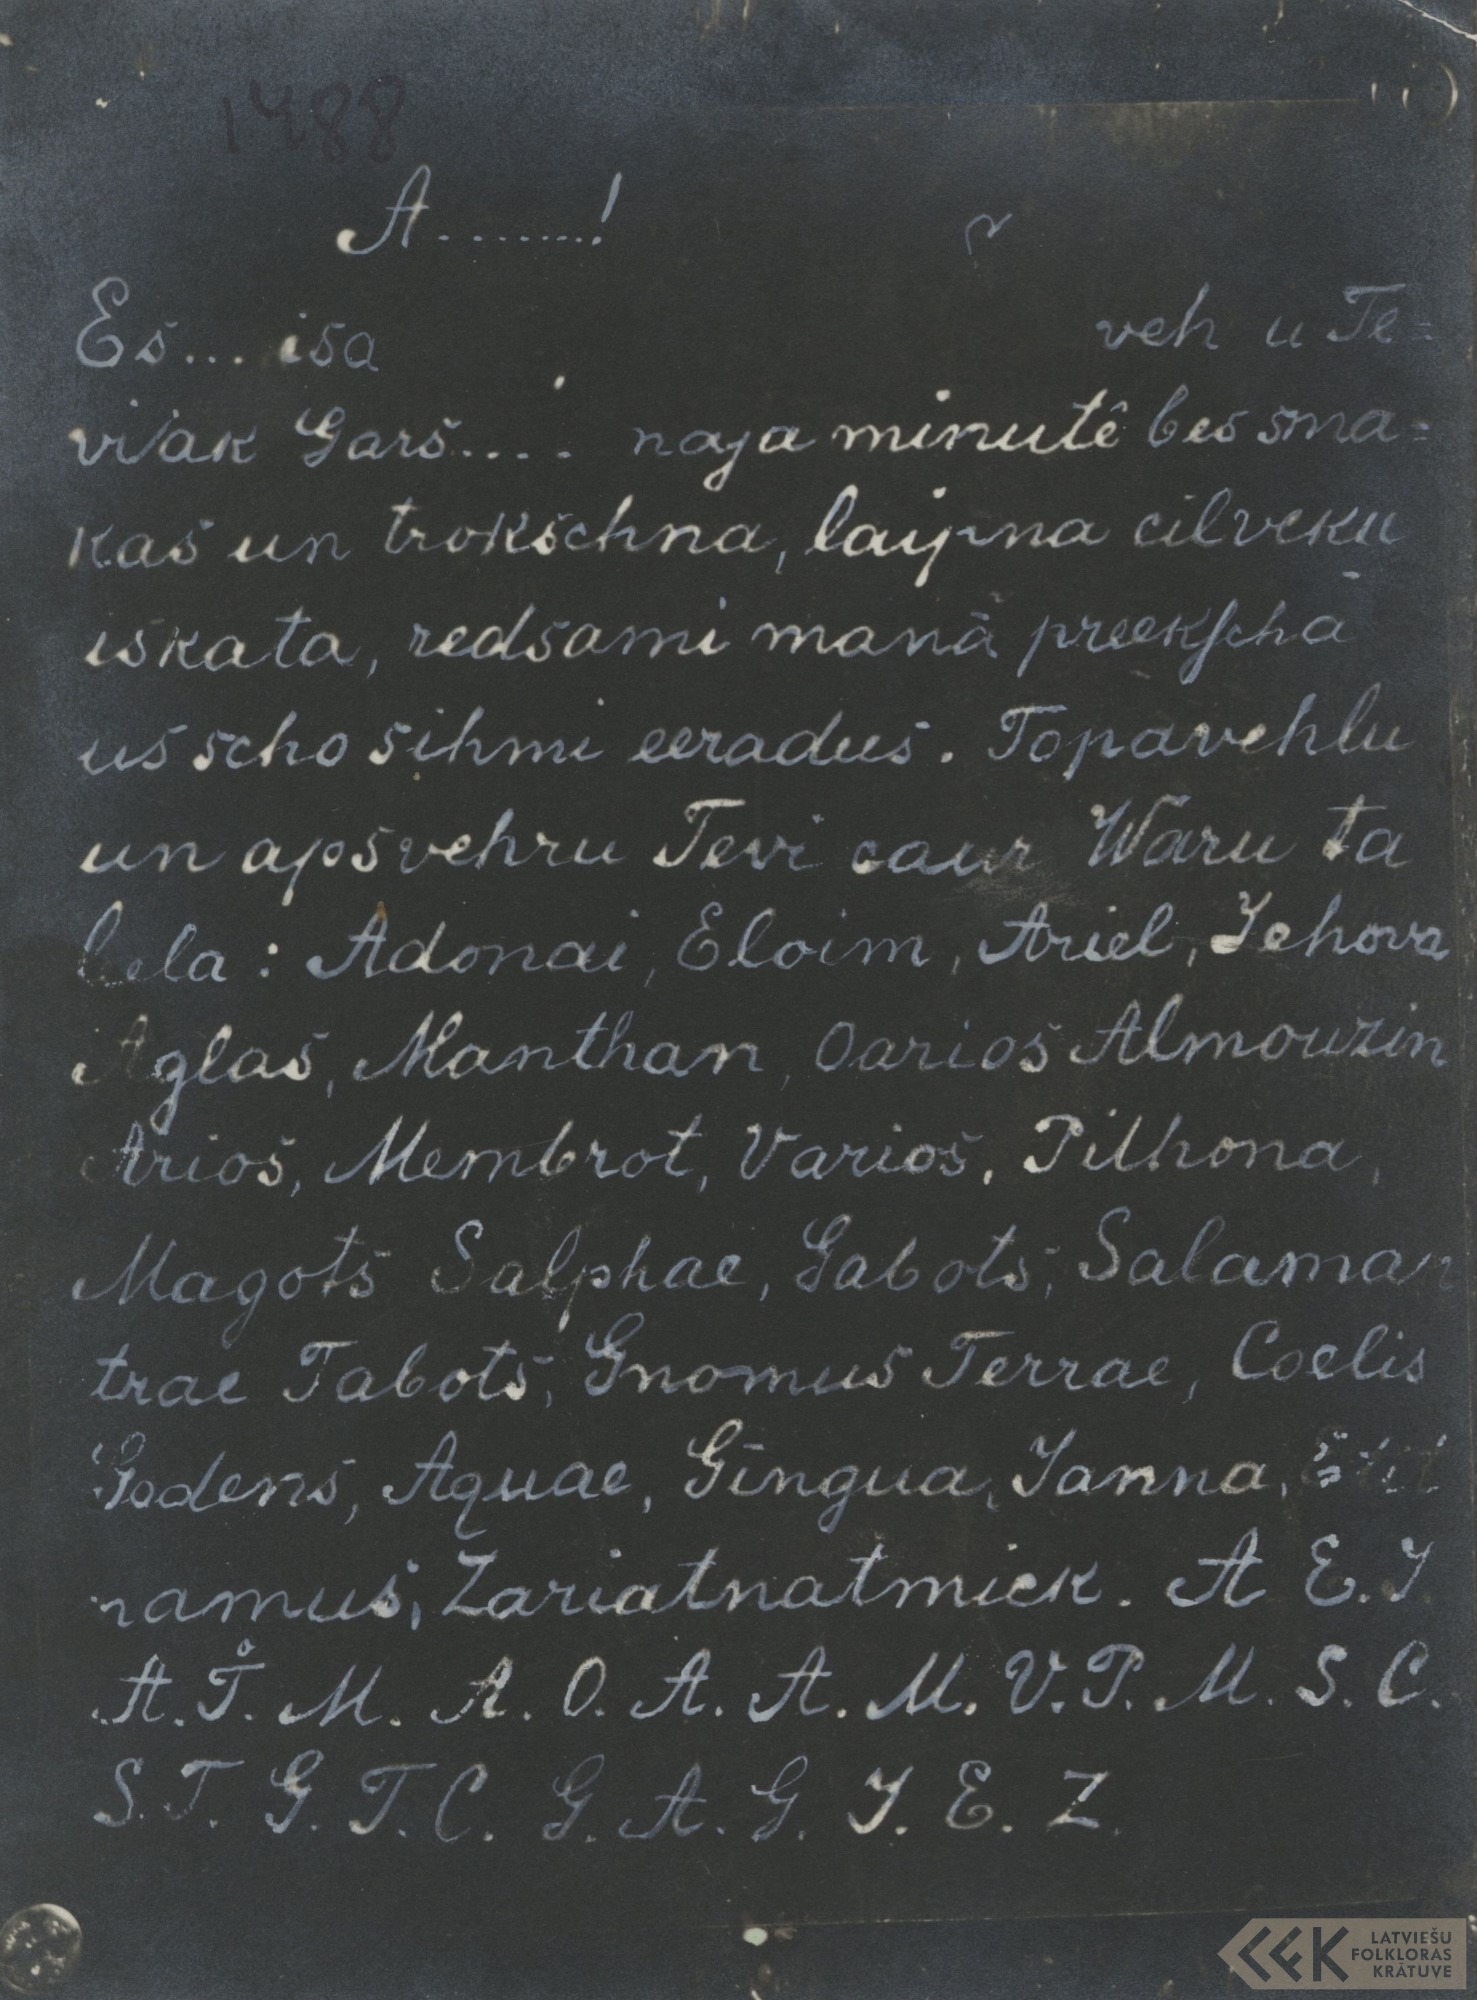 1488
A........!
Es... isa veh u Te=
vi'ak Gars.... naja minutê bes sma=
kas un trokschna, laipna cilveku
iskata, redsami manā preekscha
us scho sihmi eeradus. Topavehlu
un apsvehru Tevi caur Waru ta
bela: Adonai, Eloim, Ariel, Jehova
Aglas, Manthan, Oarios Almouzin
Arios, Membrot, Varios, Pilhona,
Magots Salphae, Gabots, Salaman
trae Tabots, Gnomus Terrae, Coelis
Godens, Aquae, Gingua, Janna,
namus, Zariatnatmick. A E. J.
A. T. M. A. O. A. A. M. V. P. M. S. C.
S. T. G. T. C. G. A. G. J. E. Z.
LATVIEŠU
FOLKLORAS
KRĀTUVE